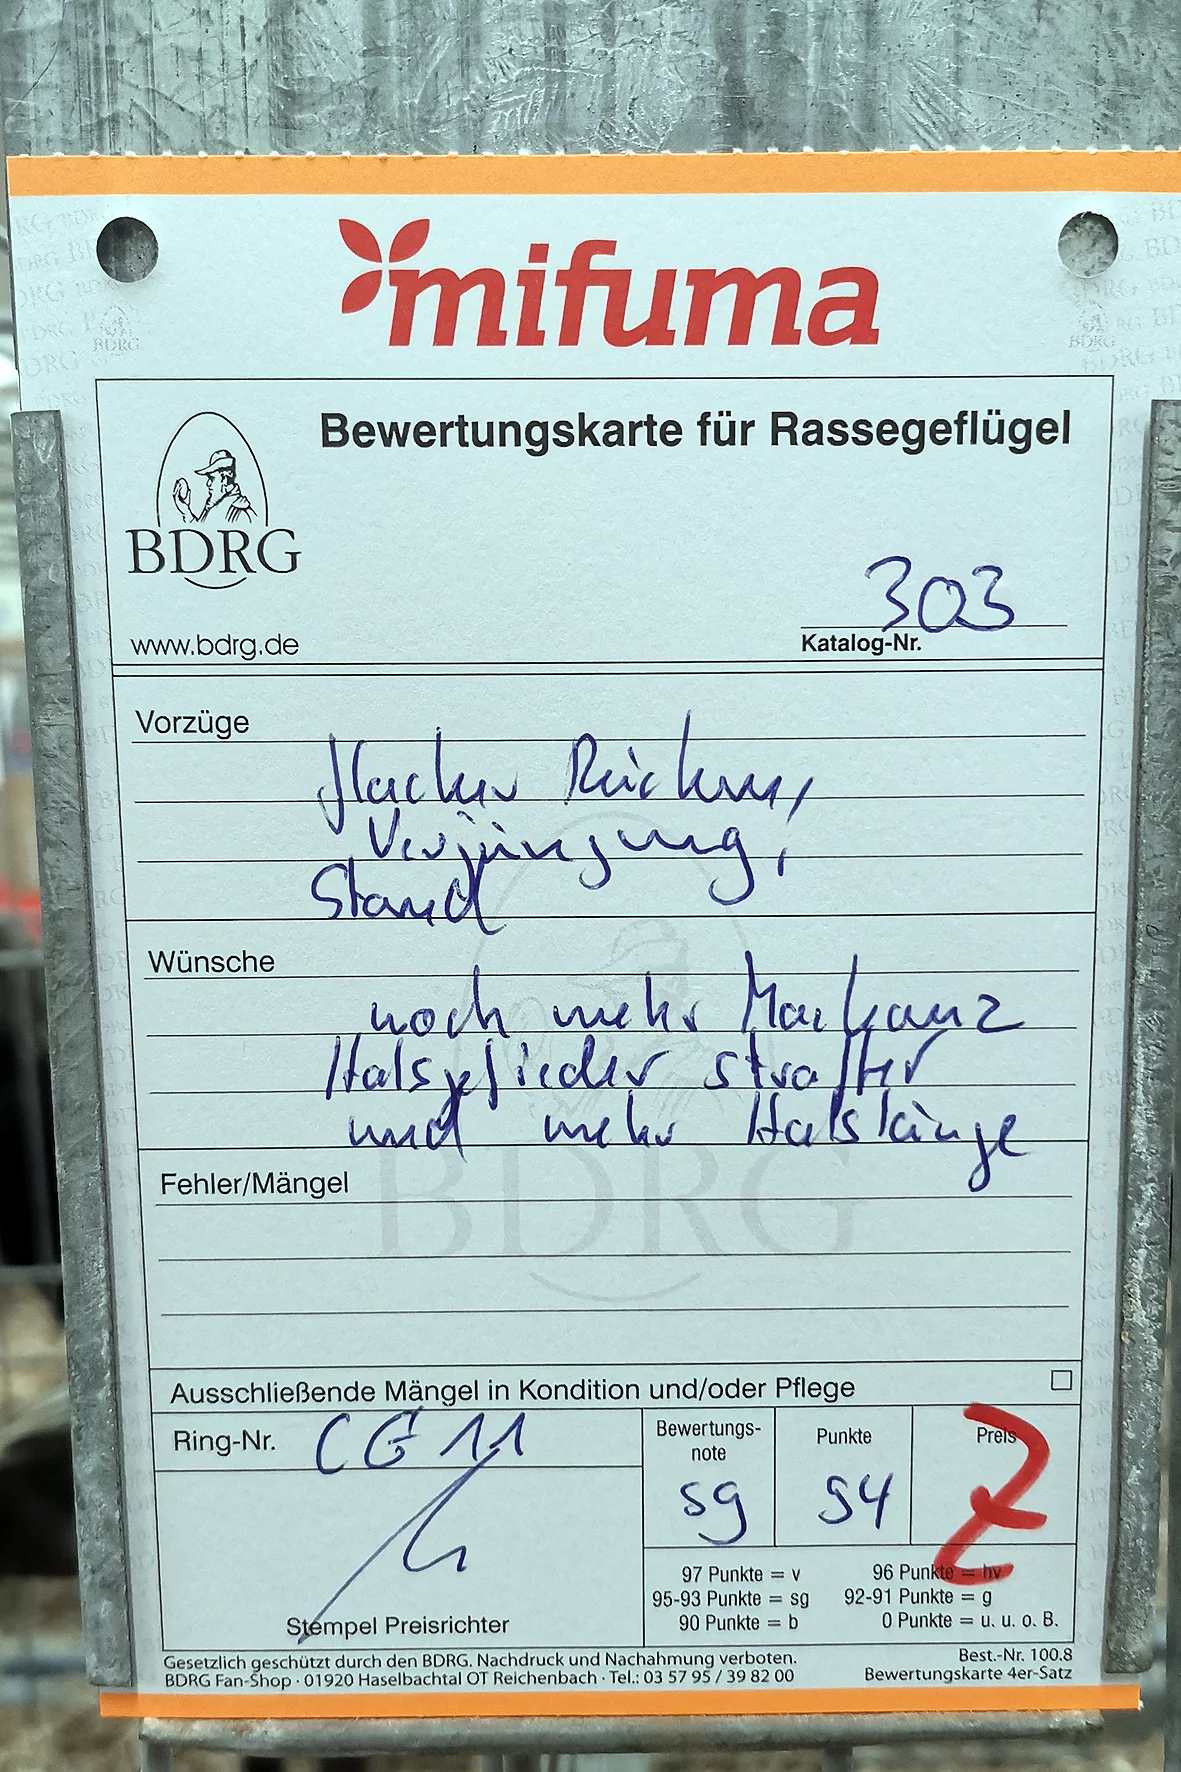 mifuma
Bewertungskarte für Rassegeflügel
BDRG
www.bdrg.de
303
Katalog-Nr.
Vorzüge
flacher Rücken,
Verjüngung,
Stand
Wünsche
noch mehr Markanz
Halsgefieder straffer
und mehr Halslänge
Fehler/Mängel
BDRG
Ausschließende Mängel in Kondition und/oder Pflege
Ring-Nr. CG 11
Bewertungs-
note
sg
Punkte
94
Preis
Z
Stempel Preisrichter
97 Punkte = v 96 Punkte = hv
95-93 Punkte = sg 92-91 Punkte = g
90 Punkte = b 0 Punkte = u. u. o. B.
Gesetzlich geschützt durch den BDRG. Nachdruck und Nachahmung verboten.
BDRG Fan-Shop · 01920 Haselbachtal OT Reichenbach · Tel.: 03 57 95 / 39 82 00
Best.-Nr. 100.8
Bewertungskarte 4er-Satz